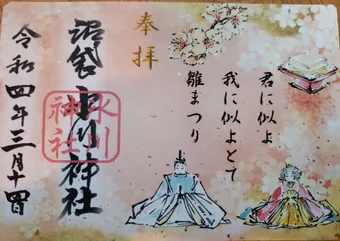 君に似よ
我に似よとて
雛まつり
奉拝
沼袋氷川神社
氷川
神社
令和四年三月十四日